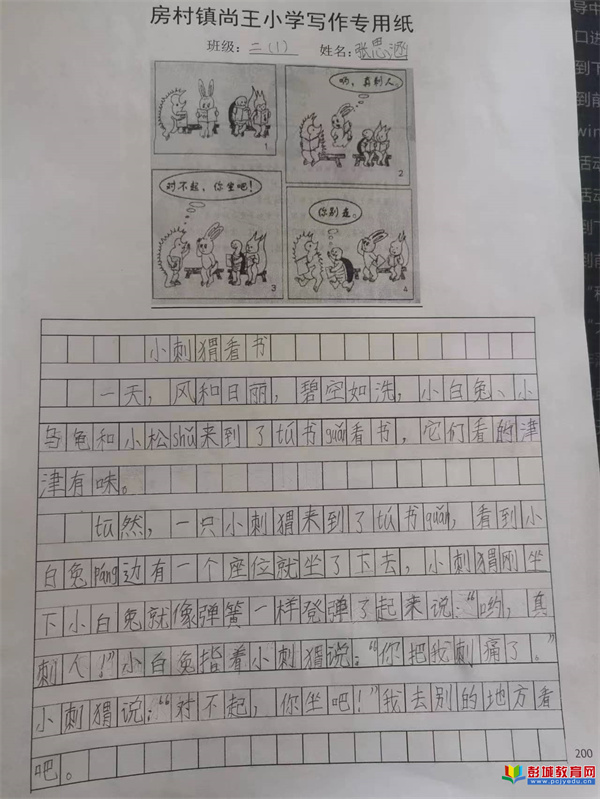 房村镇尚王小学写作专用纸
班级：二（1） 姓名：张思涵
1
哟，真刺人。
2
对不起，你坐吧！
3
你别走。
4
小刺猬看书
一天，风和日丽，碧空如洗，小白兔、小
乌龟和小松shǔ来到了tú书guǎn看书，它们看的津
津有味。
tū然，一只小刺猬来到了tú书guǎn，看到小
白兔páng边有一个座位就坐了下去，小刺猬刚坐
下小白兔就像弹簧一样登弹了起来说：“哟，真
刺人！”小白兔指着小刺猬说：“你把我刺痛了。”
小刺猬说：“对不起，你坐吧！”我去别的地方看
吧。
200
导中
口进
到下
到前
win
活动
活动
到下
到前
彭城教育网
www.pcjyedu.cn